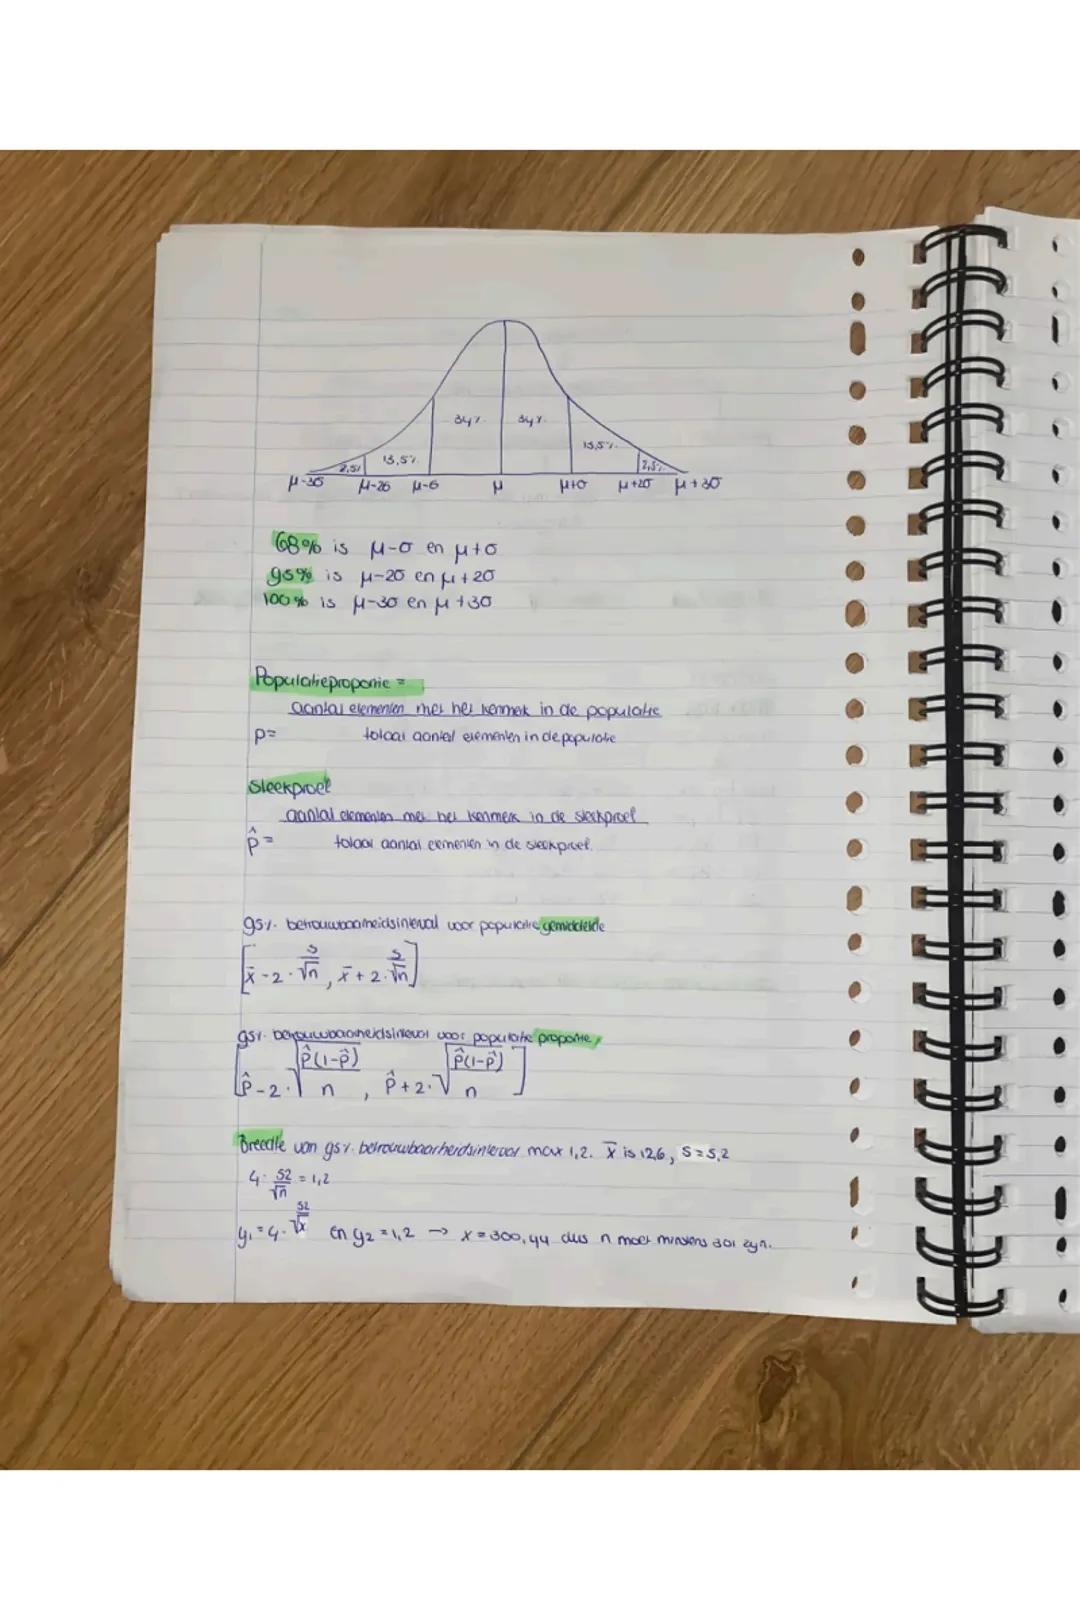 34% 34%
2,5% 13,5% 13,5% 2,5%
μ-3σ μ-2σ μ-σ μ μ+σ μ+2σ μ+3σ
68% is μ-σ en μ+σ
95% is μ-2σ en μ+2σ
100% is μ-3σ en μ+3σ
Populatieproportie =
aantal elementen met het kenmerk in de populatie
p=
totaal aantal elementen in de populatie
Steekproef
aantal elementen met het kenmerk in de steekproef
p̂ =
totaal aantal elementen in de steekproef.
95% betrouwbaarheidsinterval voor populatie gemiddelde
[x̄ - 2 · s/√n , x̄ + 2 · s/√n]
95% betrouwbaarheidsinterval voor populatie proportie
[p̂ - 2 · √(p̂(1-p̂)/n) , p̂ + 2 · √(p̂(1-p̂)/n)]
Breedte van 95% betrouwbaarheidsinterval max 1,2. x̄ is 12,6, s = 5,2
4 · 5,2/√n = 1,2
y₁ = 4 · 5,2/√x en y₂ = 1,2 → x = 300,44 dus n moet minstens 301 zijn.